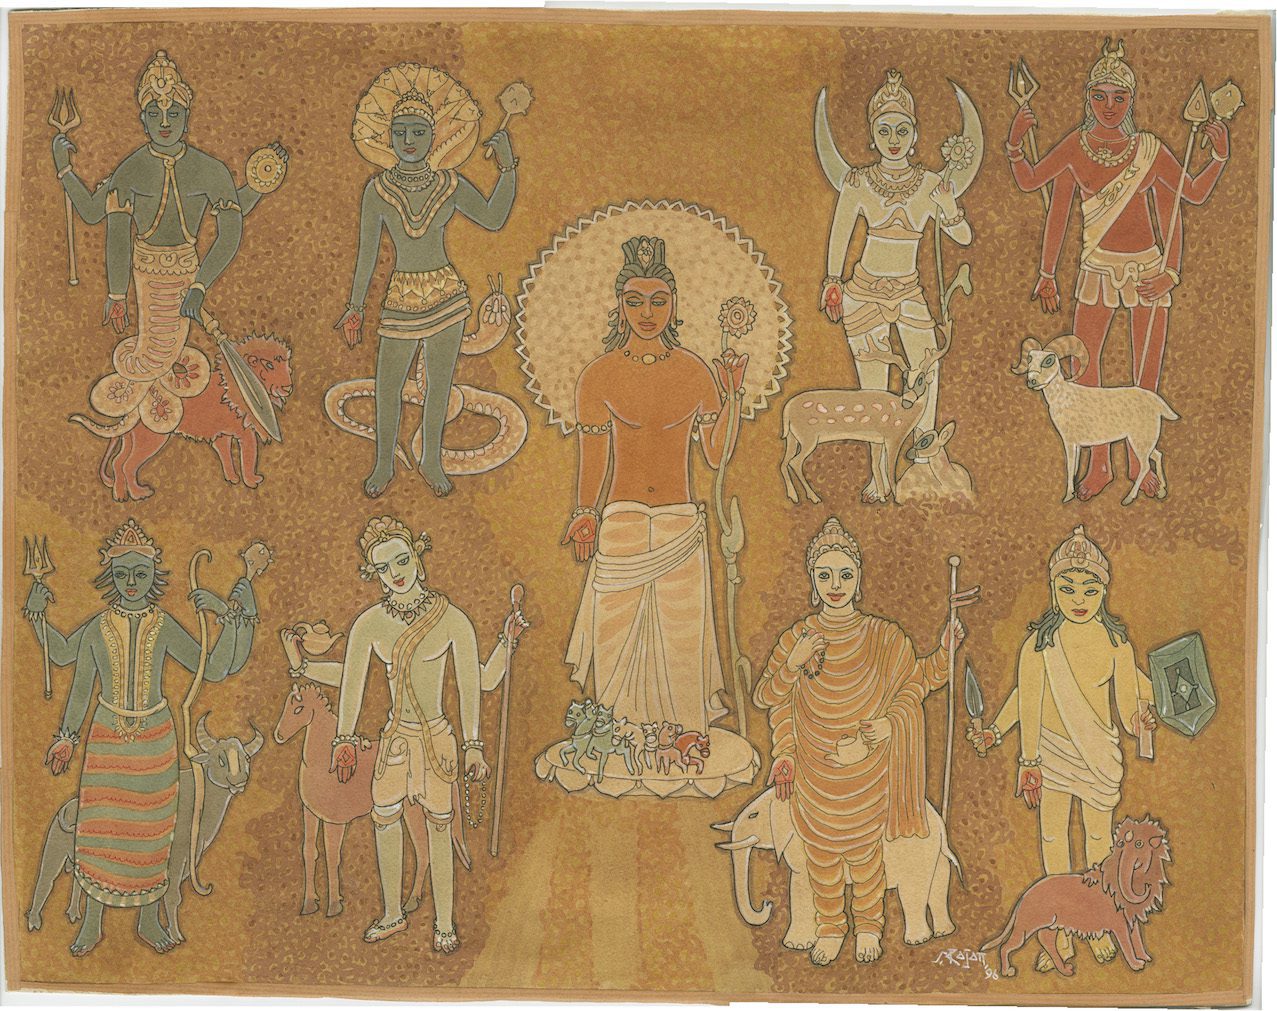 S. Rajam
'96